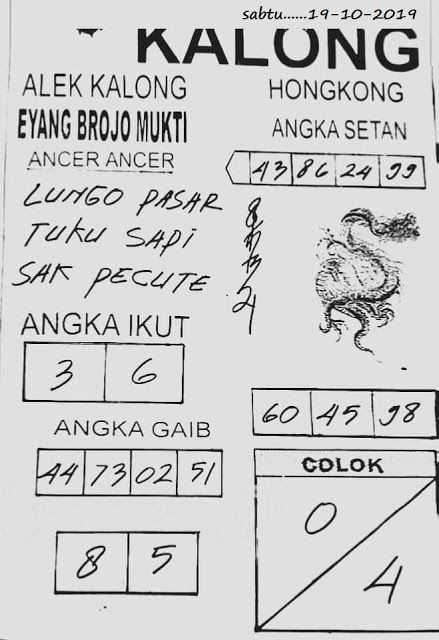 sabtu......19-10-2019
KALONG
ALEK KALONG
HONGKONG
EYANG BROJO MUKTI
ANGKA SETAN
ANCER ANCER
43 86 24 99
LUNGO PASAR
TUKU SAPI
SAK PECUTE
ANGKA IKUT
3 6
60 45 98
ANGKA GAIB
44 73 02 51
COLOK
0
4
8 5